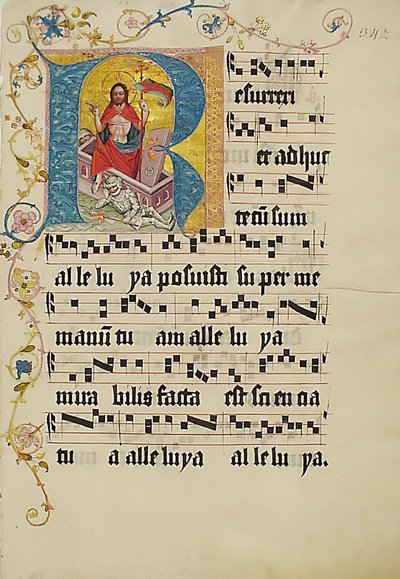 342
Resurrexi
et adhuc
tecū sum
al le lu ya posuisti su per me
manū tu am alle lu ya
mira bilis facta est sci en cia
tu a alle luya al le lu ya.